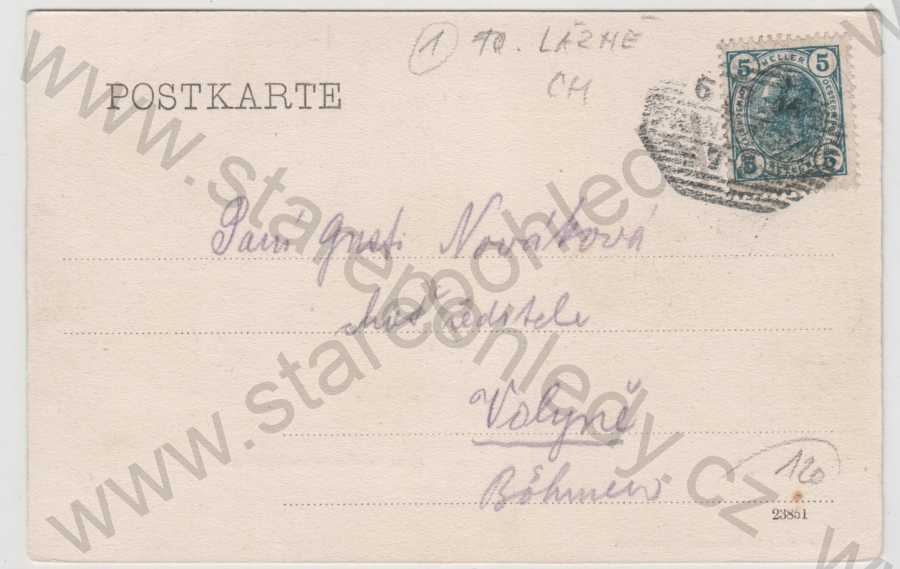 ① TO. LÁZNĚ
CH
POSTKARTE
5 HELLER 5
5 5
6
7
Paní Gusti Nováková
choť ředitele
Volyně
Böhmen
120
23851
www.starepohledy.cz
www.starepohledy.cz